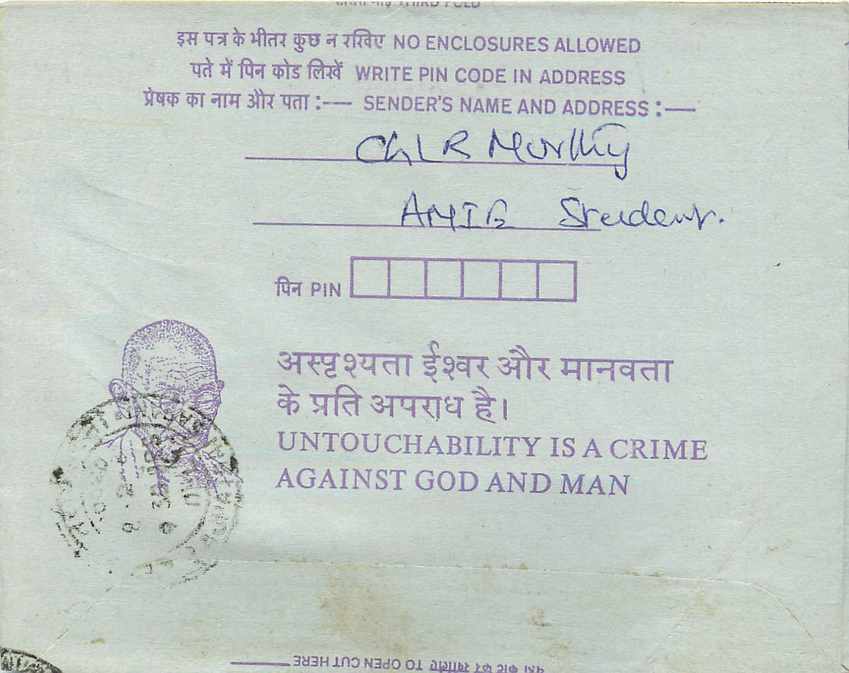 THIRD FOLD
इस पत्र के भीतर कुछ न रखिए NO ENCLOSURES ALLOWED
पते में पिन कोड लिखें WRITE PIN CODE IN ADDRESS
प्रेषक का नाम और पता :— SENDER'S NAME AND ADDRESS :—
Ch L R Murthy
AMIE Student.
पिन PIN
अस्पृश्यता ईश्वर और मानवता
के प्रति अपराध है।
UNTOUCHABILITY IS A CRIME
AGAINST GOD AND MAN
काट कर खोलिए TO OPEN CUT HERE